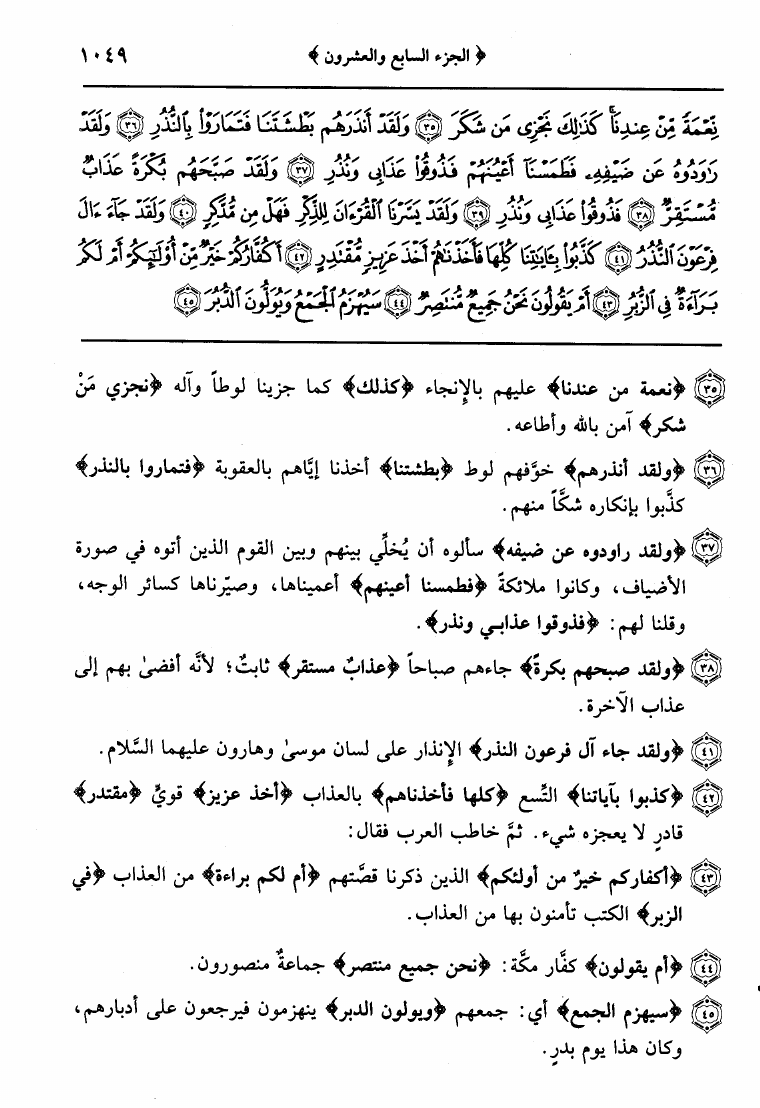 ﴿ الجزء السابع والعشرون ﴾ ١٠٤٩
نِعْمَةً مِّنْ عِندِنَا ۚ كَذَٰلِكَ نَجْزِى مَن شَكَرَ ٣٥ وَلَقَدْ أَنذَرَهُم بَطْشَتَنَا فَتَمَارَوْا۟ بِٱلنُّذُرِ ٣٦ وَلَقَدْ
رَٰوَدُوهُ عَن ضَيْفِهِۦ فَطَمَسْنَآ أَعْيُنَهُمْ فَذُوقُوا۟ عَذَابِى وَنُذُرِ ٣٧ وَلَقَدْ صَبَّحَهُم بُكْرَةً عَذَابٌ
مُّسْتَقِرٌّ ٣٨ فَذُوقُوا۟ عَذَابِى وَنُذُرِ ٣٩ وَلَقَدْ يَسَّرْنَا ٱلْقُرْءَانَ لِلذِّكْرِ فَهَلْ مِن مُّدَّكِرٍ ٤٠ وَلَقَدْ جَآءَ ءَالَ
فِرْعَوْنَ ٱلنُّذُرُ ٤١ كَذَّبُوا۟ بِـَٔايَٰتِنَا كُلِّهَا فَأَخَذْنَٰهُمْ أَخْذَ عَزِيزٍ مُّقْتَدِرٍ ٤٢ أَكُفَّارُكُمْ خَيْرٌ مِّنْ أُو۟لَٰٓئِكُمْ أَمْ لَكُم
بَرَآءَةٌ فِى ٱلزُّبُرِ ٤٣ أَمْ يَقُولُونَ نَحْنُ جَمِيعٌ مُّنتَصِرٌ ٤٤ سَيُهْزَمُ ٱلْجَمْعُ وَيُوَلُّونَ ٱلدُّبُرَ ٤٥
٣٥ ﴿نعمة من عندنا﴾ عليهم بالإِنجاء ﴿كذلك﴾ كما جزينا لوطاً وآله ﴿نجزي مَنْ
شكر﴾ آمن بالله وأطاعه.
٣٦ ﴿ولقد أنذرهم﴾ خوَّفهم لوط ﴿بطشتنا﴾ أخذنا إيَّاهم بالعقوبة ﴿فتماروا بالنذر﴾
كذَّبوا بإنكاره شكَّاً منهم.
٣٧ ﴿ولقد راودوه عن ضيفه﴾ سألوه أن يُخلِّي بينهم وبين القوم الذين أتوه في صورة
الأضياف، وكانوا ملائكةً ﴿فطمسنا أعينهم﴾ أعميناها، وصيّرناها كسائر الوجه،
وقلنا لهم: ﴿فذوقوا عذابـي ونذر﴾.
٣٨ ﴿ولقد صبحهم بكرةً﴾ جاءهم صباحاً ﴿عذابٌ مستقر﴾ ثابتٌ؛ لأنَّه أفضىٰ بهم إلى
عذاب الآخرة.
٤١ ﴿ولقد جاء آل فرعون النذر﴾ الإِنذار على لسان موسىٰ وهارون عليهما السَّلام.
٤٢ ﴿كذبوا بآياتنا﴾ التِّسع ﴿كلها فأخذناهم﴾ بالعذاب ﴿أخذ عزيز﴾ قويٍّ ﴿مقتدر﴾
قادرٍ لا يعجزه شيء. ثمَّ خاطب العرب فقال:
٤٣ ﴿أكفاركم خيرٌ من أولئكم﴾ الذين ذكرنا قصَّتهم ﴿أم لكم براءة﴾ من العذاب ﴿في
الزبر﴾ الكتب تأمنون بها من العذاب.
٤٤ ﴿أم يقولون﴾ كفَّار مكَّة: ﴿نحن جميع منتصر﴾ جماعةٌ منصورون.
٤٥ ﴿سيهزم الجمع﴾ أي: جمعهم ﴿ويولون الدبر﴾ ينهزمون فيرجعون على أدبارهم،
وكان هذا يوم بدرٍ.